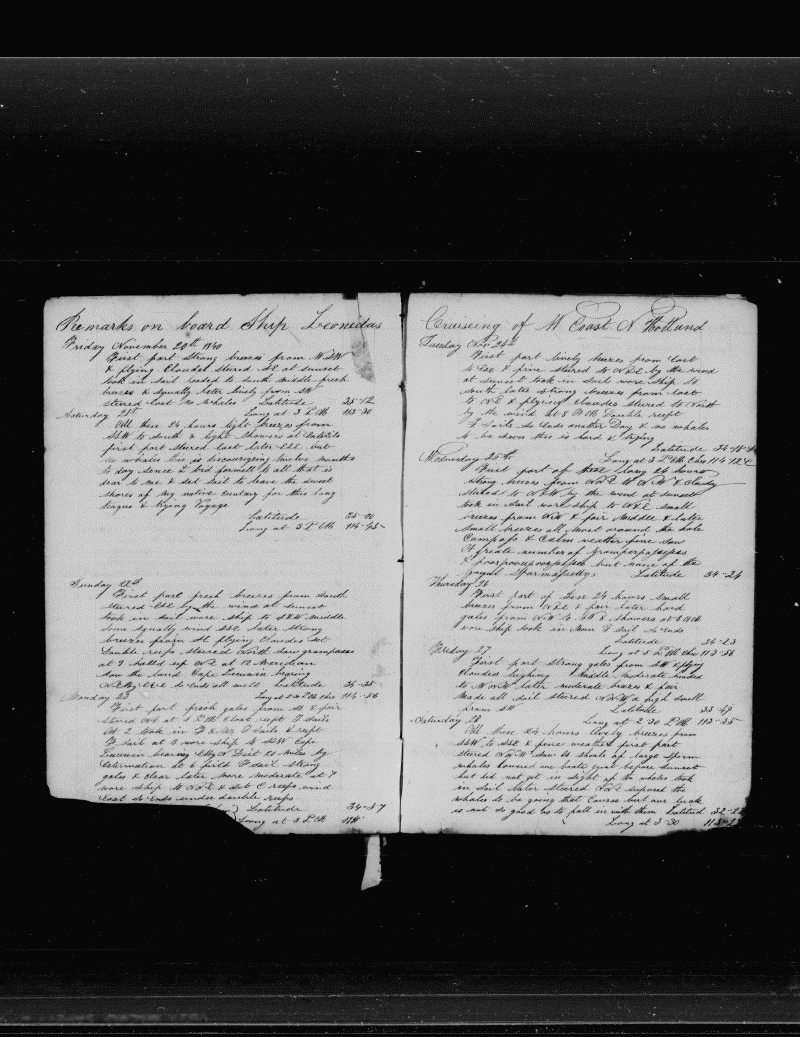 Remarks on board Ship Leonidas
Friday November 20th 1840
First part Strong breezes from WSW
& flying Clouds stered NE at sunset
took in sail headed to South middle fresh
breezes & squally later lively from SW
stered East No Whales Latitude 35-12
Saturday 21st Long at 3 PM 113-30
All these 24 hours light breezes from
SSW to South & light Showers at
first part stered East later ESE but
no whales this is discouraging twelve months
to day sence I bid farwell to all that is
dear to me & set sail to leave the sweet
shores of my native Cuntary for this long
& trying Voyage
Latitude 35-40
Long at 3 PM 114-45
Sunday 22d
First part fresh breezes from South
stered ESE by the wind at sunset
took in sail wore ship to SSW middle
some squally wind SSE later strong
breezes from SE flying Cloudes Set
Double reefs stered North Saw grampases
at 9 halled up NE at 12 Meridian
Saw the land Cape Leeuwin bearing
So Ends all well Latitude 34-35
Monday 23 Long at 2 PM 114-56
First part fresh gales from SE & fair
stered NE at 1 PM Close reeft T Sails
At 2 took in F & M T Sails & reeft
F Sail at 3 wore ship to SSW Cape
Leeuwin bearing Dist 20 Miles by
at 6 furld F Sail strong
gales & clear later more moderate at 7
wore ship to & set C reefs wind
East So Ends under double reefs
Latitude 34-57
Long at 3 PM 114
Cruiseing of W Coast N Holland
Tuesday Nov 24th
First part lively breezes from East
to ESE & fine stered to NNE by the wind
at sunset took in Sail wore Ship to
South later strong breezes from East
to NE & flying Cloudes stered to North
by the wind at 8 AM Double reeft
T Sails So Ends another Day & no whales
to be seen this is hard & trying
Latitude 34-18
Wednesday 25th Long at 3 PM 114-12
First part of these long 24 hours
strong breezes from NNE to & Cloudy
stered to by the wind at sunset
took in Sail wore ship to small
breezes from NW & fair Middle & later
small breezes all most around the hole
Compass & Calm weather fine Saw
A greate number of
& but none of the
Latitude 34-24
Thursday 26
First part of these 24 hours small
breezes from & fair later hard
gales from & Showers at 8 AM
wore ship took in Main T Sail So Ends
Latitude 34-23
Friday 27 Long at 3 PM 113-56
First part Strong gales from SW & flying
Cloudes Middle moderate headed
to later moderate breezes & fair
made all sail stered & a high Swell
from SW Latitude 33-49
Saturday 28 Long at 2-30 PM 113-35
All these 24 hours lively breezes from
SSW to SSE & fine weather first part
stered NNW saw a shoale of large Sperm
whales Lowered our boats just before Sunset
but did not get in sight of the whales took
in Sail later Steered suposed the
whales to be going that Course but our luck
is not so good as to fall in with them Latitud 32-
Long at 3-30 113-